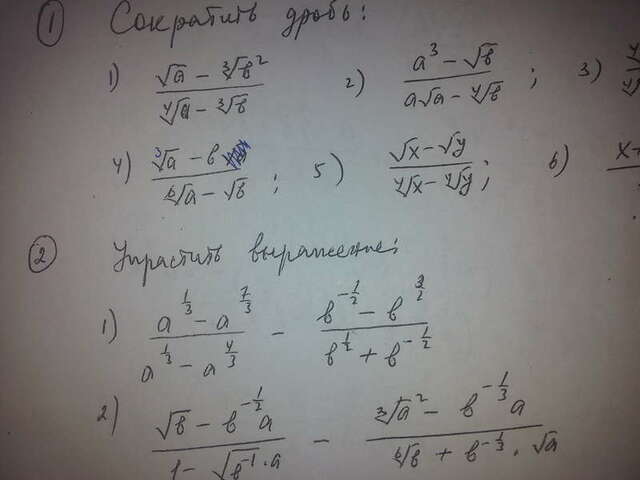 ① Сократить дробь:
1) (√a - ∛b²)/(⁴√a - ∛b) 2) (a³ - √b)/(a√a - ⁴√b); 3)
4) (∛a - b)/(⁶√a - √b); 5) (√x - √y)/(⁴√x - ⁴√y); 6)
② Упрастить выражение:
1) (a^(1/3) - a^(7/3))/(a^(1/3) - a^(4/3)) - (b^(-1/2) - b^(3/2))/(b^(1/2) + b^(-1/2))
2) (√b - b^(-1/2)a)/(1 - √(b^(-1)·a)) - (∛a² - b^(-1/3)a)/(⁶√b + b^(-1/3)·√a)